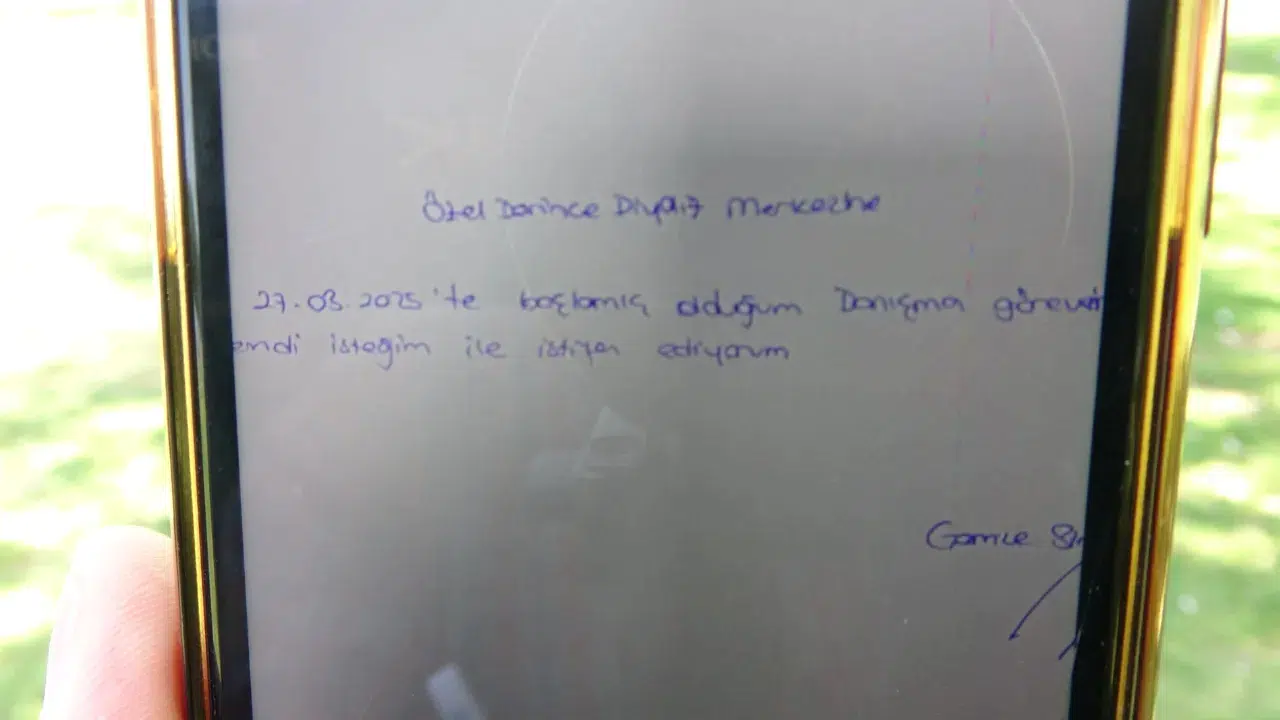 Özel Darince Diyaliz Merkezine
27.03.2025'te başlamış olduğum Danışma
isteğim ile istifa ediyorum
Gamze